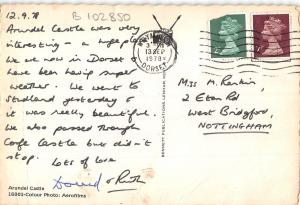 12.9.78
B 102850
Arundel Castle was very
interesting - a huge place
we are now in Dorset
have been having super
weather. We went to
Studland yesterday &
it was really beautiful.
We also passed through
Corfe Castle but didn't
stop.
Lots of love
David & Ruth
Arundel Castle
16001-Colour Photo: Aerofilms
13 SEP
1978
DORSET
Miss M. Rankin,
2 Eton Rd
West Bridgford,
NOTTINGHAM